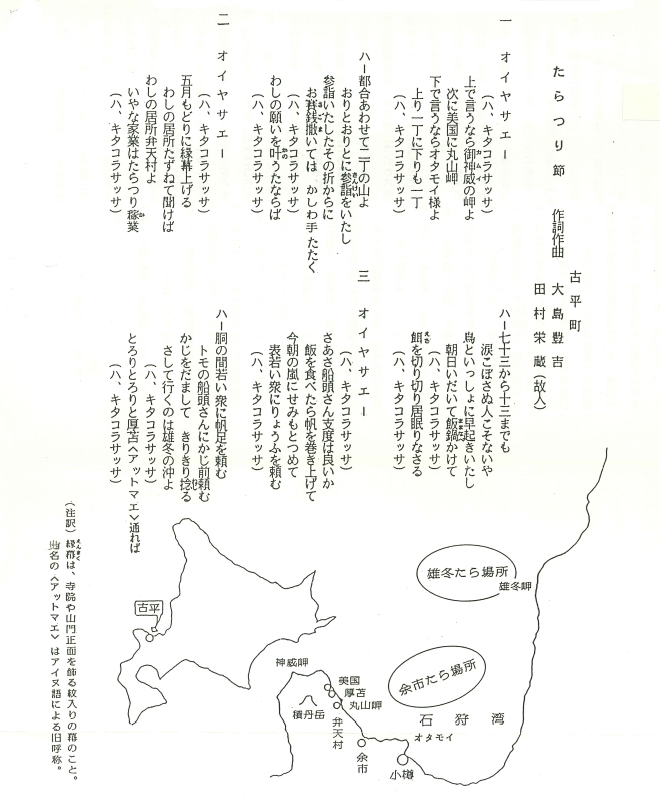 古平町
たらつり節 作詞作曲 大島豊吉
田村栄蔵(故人)
一 オイヤサエー
(ハ、キタコラサッサ)
上で言うなら御神威の岬よ
次に美国に丸山岬
下で言うならオタモイ様よ
上り一丁に下りも一丁
(ハ、キタコラサッサ)
ハー都合あわせて二丁の山よ
おりとおりとに参詣をいたし
参詣いたしたその折からに
お賽銭撒いては かしわ手たたく
(ハ、キタコラサッサ)
わしの願いを叶うたならば
(ハ、キタコラサッサ)
二 オイヤサエー
(ハ、キタコラサッサ)
五月もどりに縁幕上げる
わしの居所たずねて聞けば
わしの居所弁天村よ
いやな家業はたらつり稼業
(ハ、キタコラサッサ)
ハー七十三から十三までも
涙こぼさぬ人こそないや
鳥といっしょに早起きいたし
朝日いだいて飯鍋かけて
(ハ、キタコラサッサ)
餌を切り切り居眠りなさる
(ハ、キタコラサッサ)
三 オイヤサエー
(ハ、キタコラサッサ)
さあさ船頭さん支度は良いか
飯を食べたら帆を巻き上げて
今朝の嵐にせみもとつめて
表若い衆にりょうふを頼む
(ハ、キタコラサッサ)
ハー胴の間若い衆に帆足を頼む
トモの船頭さんにかじ前頼む
かじをだまして きりきり捻る
さして行くのは雄冬の沖よ
(ハ、キタコラサッサ)
とろりとろりと厚苫〈アットマエ〉通れば
(ハ、キタコラサッサ)
(注訳)縁幕は、寺院や山門正面を飾る紋入りの幕のこと。
地名の〈アットマエ〉はアイヌ語による旧呼称。
雄冬たら場所
雄冬岬
余市たら場所
石狩湾
古平
神威岬
美国
厚苫
丸山岬
積丹岳
弁天村
余市
オタモイ
小樽